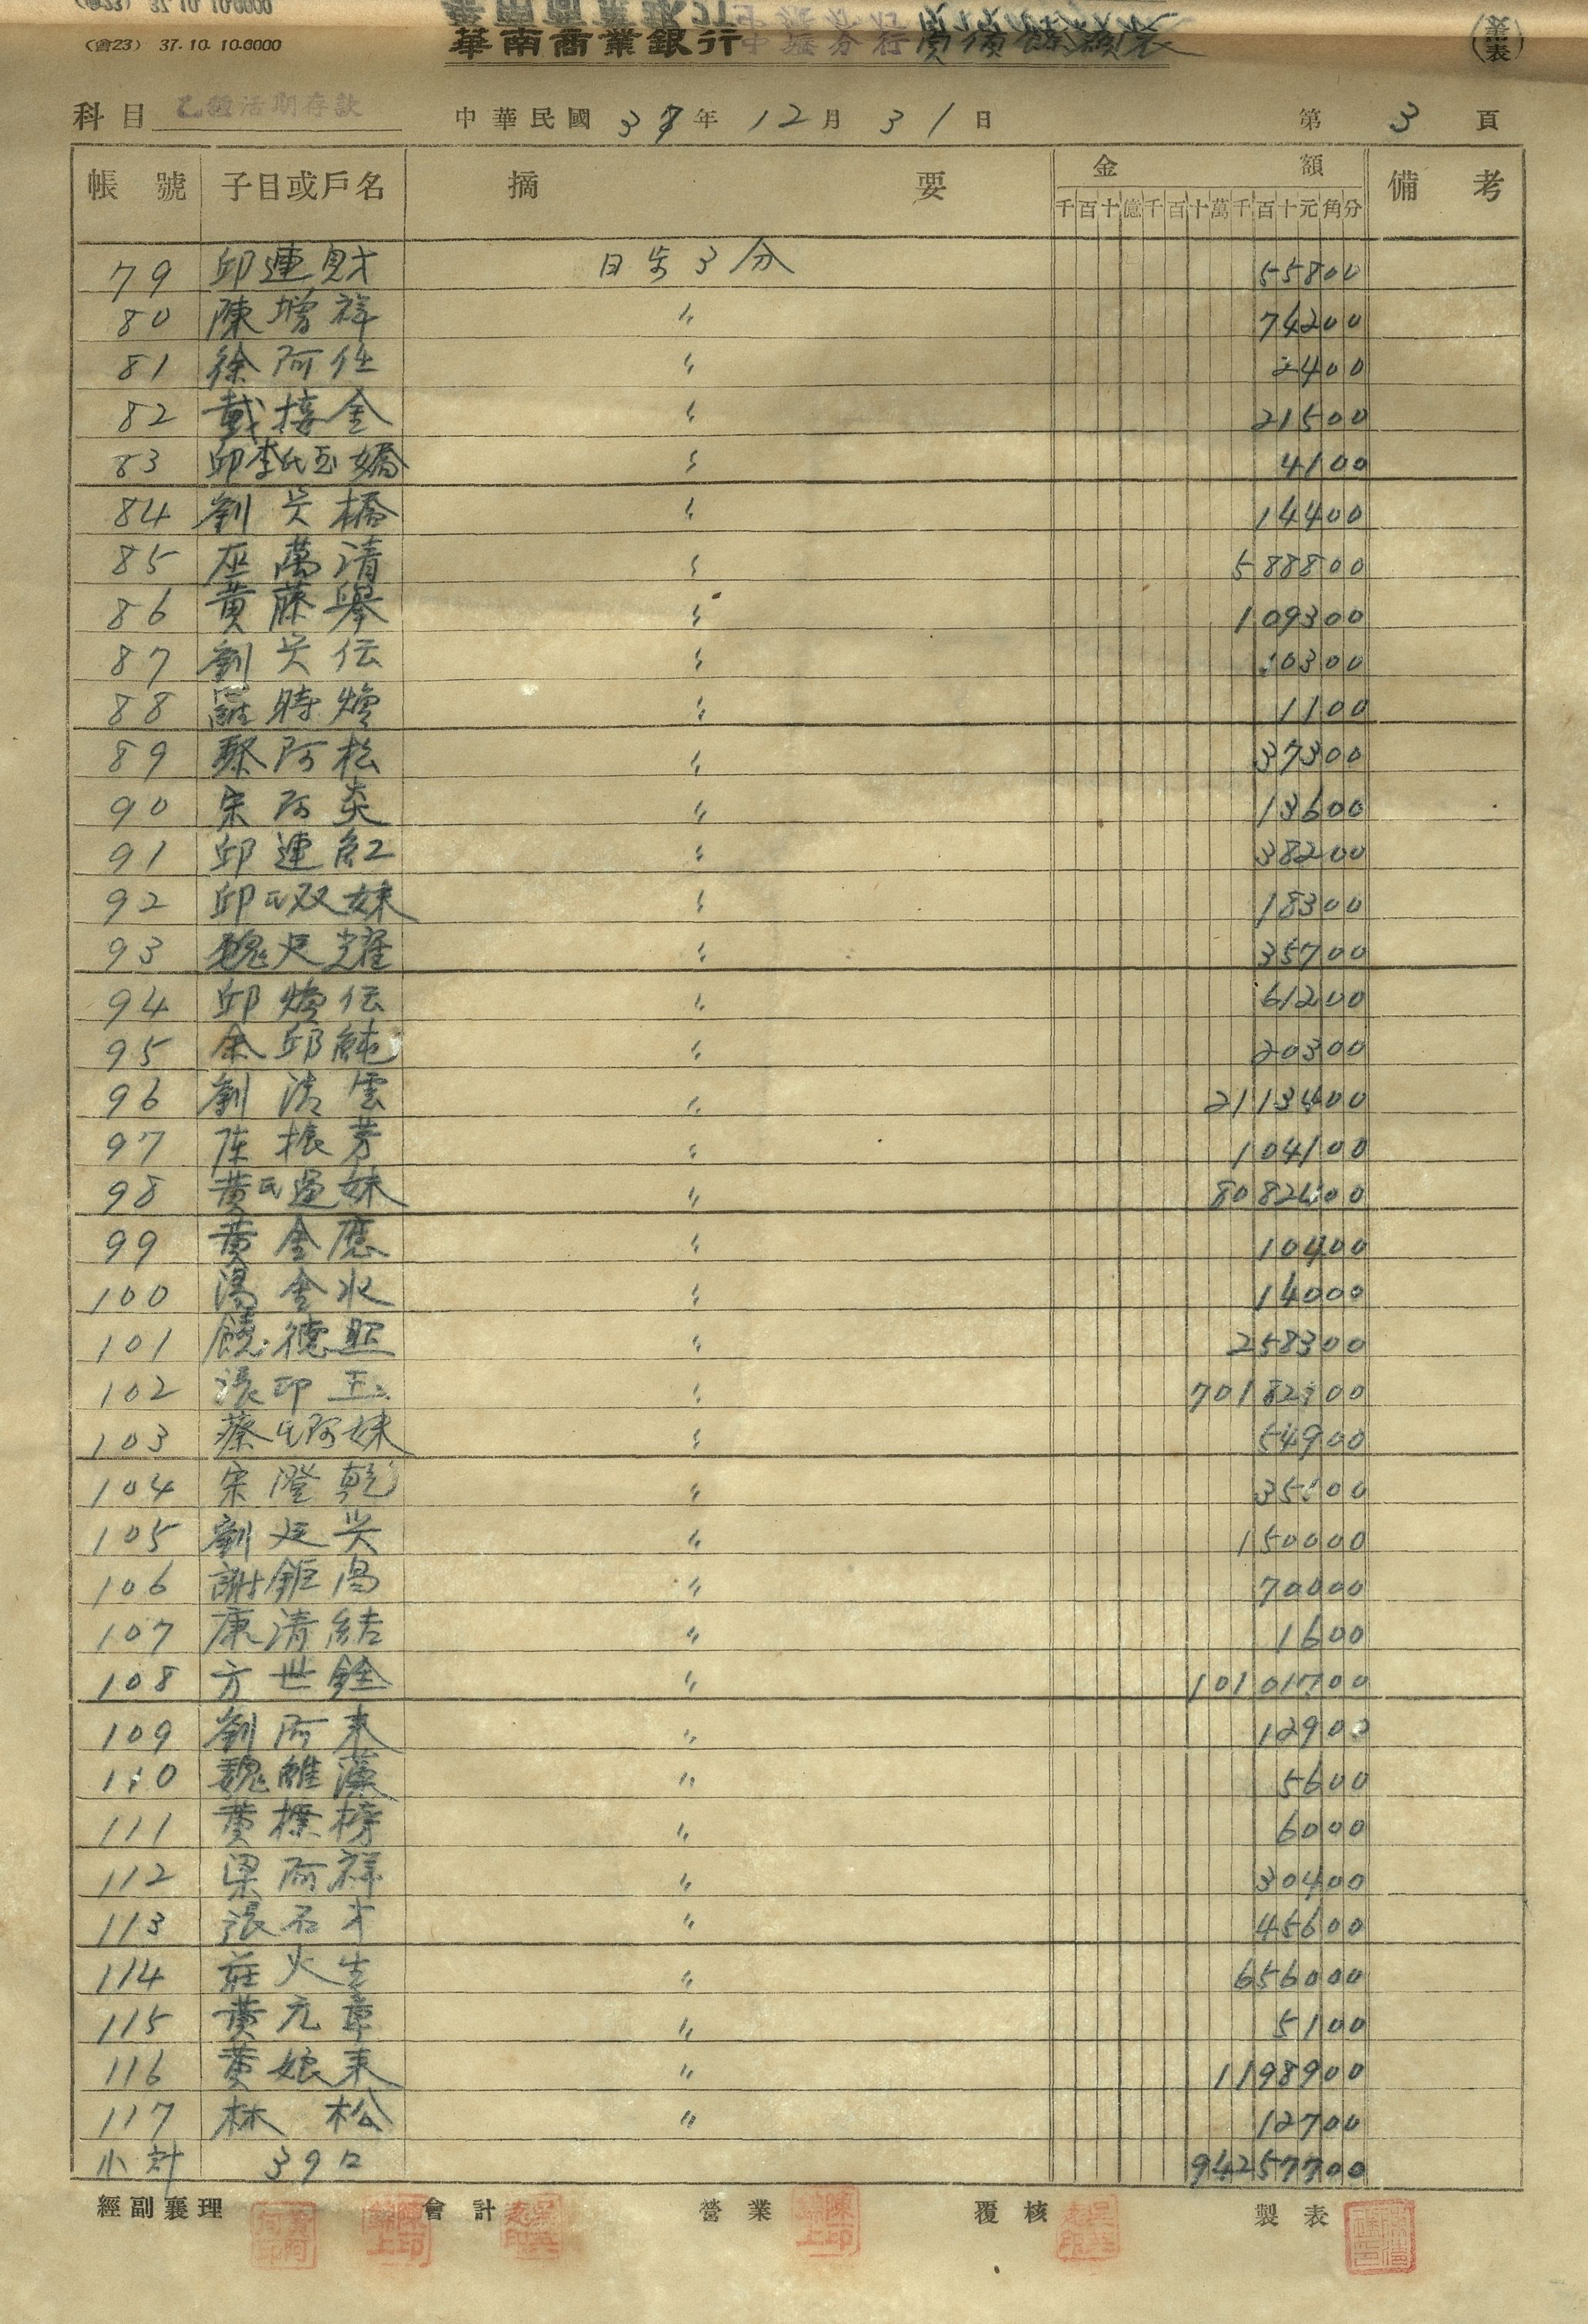 (會23) 37.10.10.0000
華南商業銀行中壢分行負債餘額表
科目 乙種活期存款 中華民國 37年 12月 31日 第 3 頁
帳號 子目或戶名 摘要 金額 備考
千百十億千百十萬千百十元角分
79 邱連財 日歩3分 55800
80 陳增祥 〃 74200
81 徐阿任 〃 2400
82 戴接金 〃 21500
83 邱李氏玉嬌 〃 4100
84 劉兴橋 〃 14400
85 巫萬清 〃 588800
86 黃藤舉 〃 109300
87 劉兴伝 〃 10300
88 羅時 〃 1100
89 阿松 〃 37300
90 宋阿炎 〃 13600
91 邱連 〃 38200
92 邱氏双妹 〃 18300
93 魏廷耀 〃 35700
94 邱伝 〃 61200
95 余邱 〃 20300
96 劉清雲 〃 2113400
97 陈振芳 〃 104100
98 黃氏運妹 〃 8082400
99 黃金應 〃 10400
100 湯金水 〃 14000
101 饒德照 〃 258300
102 張印玉 〃 70182 00
103 蔡氏阿妹 〃 54900
104 宋澄乾 〃 35 00
105 劉廷兴 〃 150000
106 謝鉅昌 〃 70000
107 康清結 〃 1600
108 方世銓 〃 10101700
109 劉阿来 〃 12900
110 魏維藻 〃 5600
111 黃標榜 〃 6000
112 梁阿祥 〃 30400
113 張石才 〃 45600
114 莊火生 〃 656000
115 黃元章 〃 5100
116 黃娘来 〃 1198900
117 林松 〃 12700
小計 39口 94257700
經副襄理 會計 營業 覆核 製表